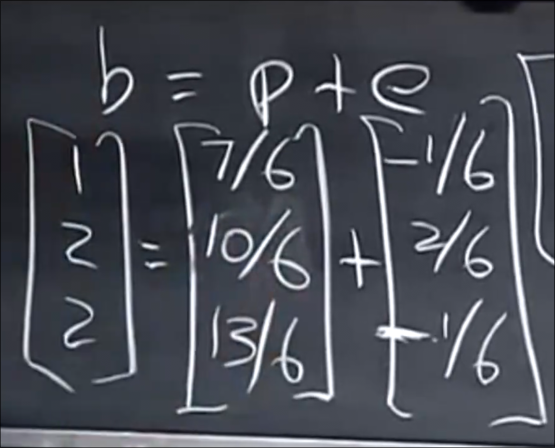 b = p + e
[1 2 2] = [7/6 10/6 13/6] + [-1/6 2/6 -1/6]